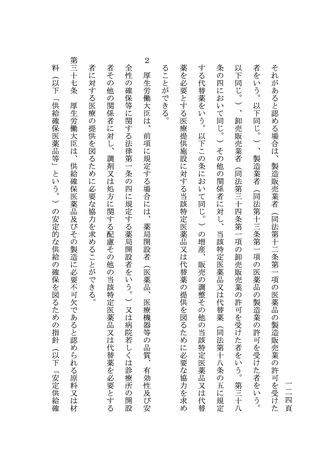 一二四頁
それがあると認める場合は、製造販売業者（同法第十二条第一項の医薬品の製造販売業の許可を受けた
者をいう。以下同じ。）、製造業者（同法第十三条第一項の医薬品の製造業の許可を受けた者をいう。
以下同じ。）、卸売販売業者（同法第三十四条第一項の卸売販売業の許可を受けた者をいう。第三十八
条の四において同じ。）その他の関係者に対し、当該特定医薬品又は代替薬（同法第十八条の五に規定
する代替薬をいう。以下この条において同じ。）の増産、販売の調整その他の当該特定医薬品又は代替
薬を必要とする医療提供施設に対する当該特定医薬品又は代替薬の提供を図るために必要な協力を求め
ることができる。
２　厚生労働大臣は、前項に規定する場合には、薬局開設者（医薬品、医療機器等の品質、有効性及び安
全性の確保等に関する法律第一条の四に規定する薬局開設者をいう。）又は病院若しくは診療所の開設
者その他の関係者に対し、調剤又は処方に関する配慮その他の当該特定医薬品又は代替薬を必要とする
者に対する医療の提供を図るために必要な協力を求めることができる。
第三十七条　厚生労働大臣は、供給確保医薬品及びその製造に必要不可欠であると認められる原料又は材
料（以下「供給確保医薬品等」という。）の安定的な供給の確保を図るための指針（以下「安定供給確